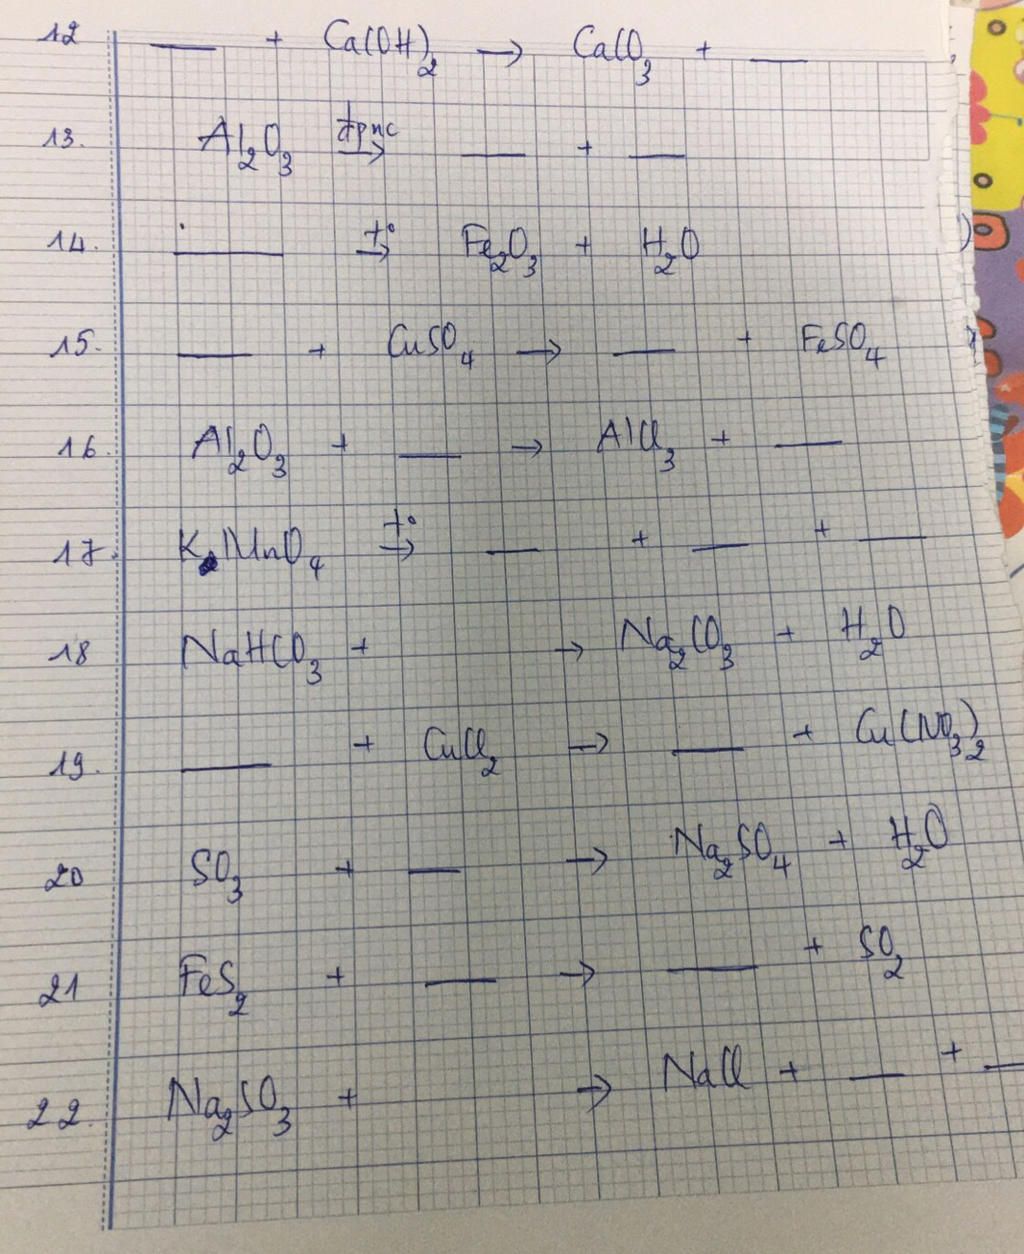 12 ___ + Ca(OH)2 → CaCO3 + ___
13. Al2O3 đpnc → ___ + ___
14. ___ t° → Fe2O3 + H2O
15. ___ + CuSO4 → ___ + FeSO4
16. Al2O3 + ___ → AlCl3 + ___
17. KMnO4 t° → ___ + ___ + ___
18 NaHCO3 + → Na2CO3 + H2O
19. ___ + CuCl2 → ___ + Cu(NO3)2
20 SO3 + ___ → Na2SO4 + H2O
21 FeS2 + ___ → ___ + SO2
22. Na2SO3 + → NaCl + ___ + ___